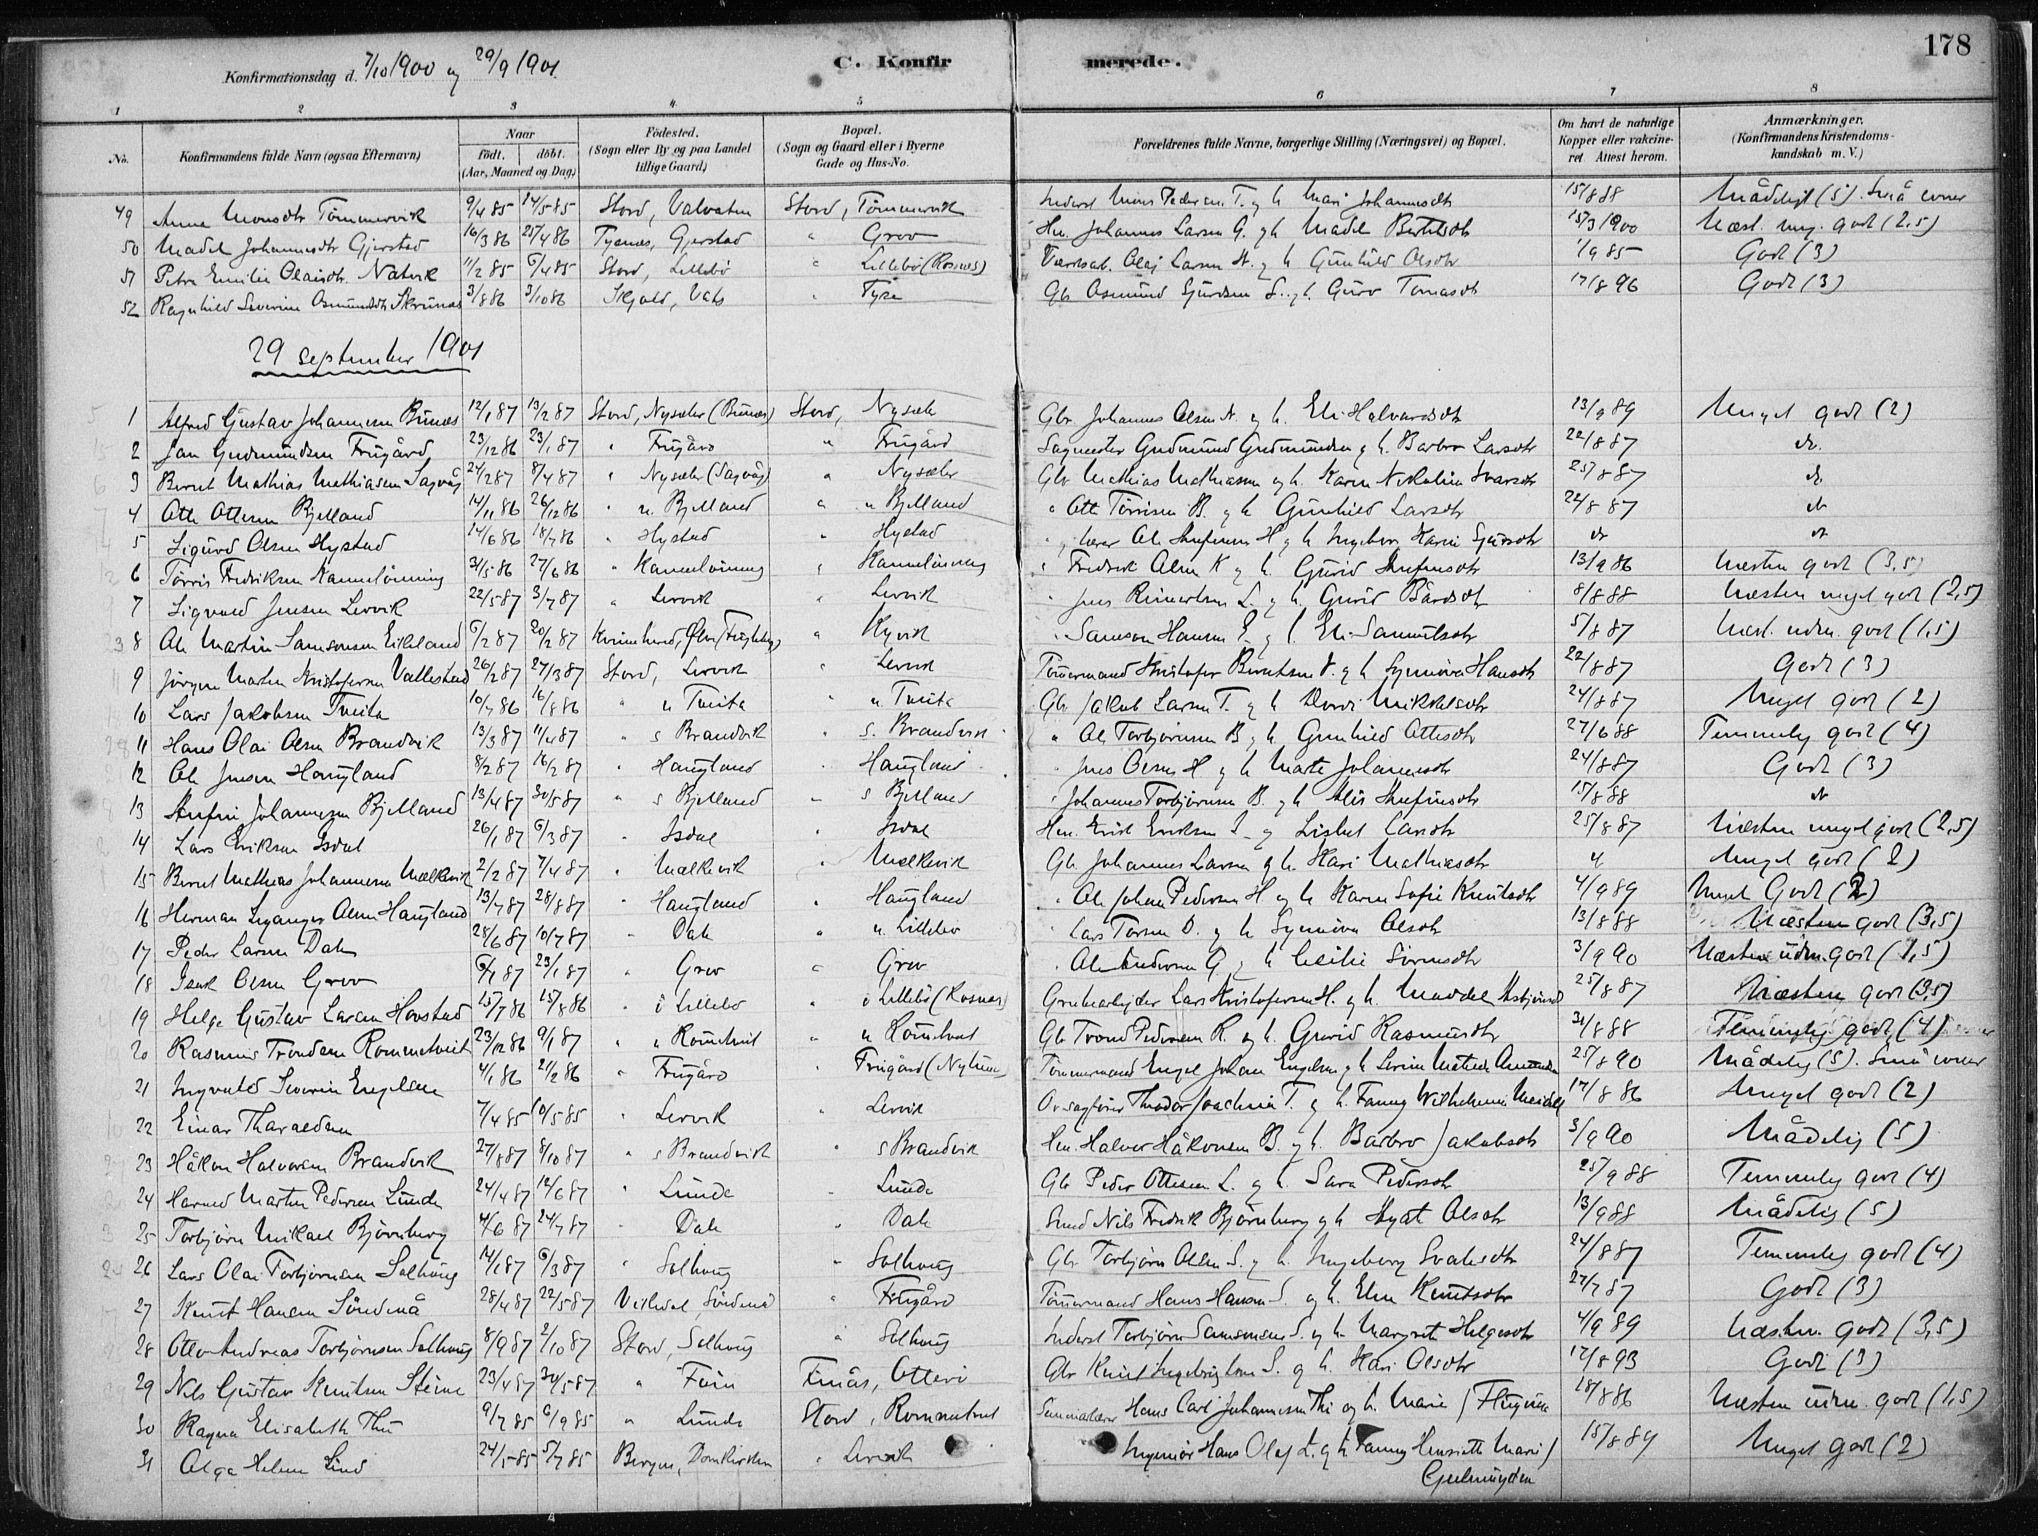 178
Konfirmationsdag d. 7/10 1900 og 29/9 1901
C. Konfirmerede.
1 2 3 4 5 6 7 8
No. Konfirmandens fulde Navn (ogsaa Efternavn) Naar født. døbt. (Aar, Maaned og Dag.) Fødested. (Sogn eller By og paa Landet tillige Gaard) Bopæl. (Sogn og Gaard eller i Byerne Gade og Hus-No. Forældrenes fulde Navne, borgerlige Stilling (Næringsvei) og Bopæl. Om havt de naturlige Kopper eller vakcineret Attest herom. Anmærkninger. (Konfirmandens Kristendomskundskab m. V.)
49 Anna Monsdtr Tømmervik 9/4 85 14/5 85 Stord, Valvatna Stord, Tømmervik Inderst Mons Pedersen T. og h. Mari Johannesdtr 15/8 88 Mådeligt (5). Små evner
50 Madel Johannesdtr Gjerstad 16/3 86 25/4 86 Tysnes, Gjerstad " Grov Hm. Johannes Larsen G. og h. Madel Bertilsdtr 15/3 1900 Næst. meg. godt (2,5)
51 Petra Emilie Olaisdtr. Natvik 11/2 85 6/4 85 Stord, Lillebø " Lillebø (Rosnes) Olaj Larsen N. og h. Gunhild Olsdtr 1/9 85 Godt (3)
52 Ragnhild Severine Osmundsdtr Skrunes 3/8 86 3/10 86 Skjold, Vats " Tyse Gbr Osmund Sjurdsen S. og h. Guro Tomasdtr 17/8 96 Godt (3)
29 september 1901
1 Alfred Gustav Johannesen Bunes 12/1 87 13/2 87 Stord, Nysæter (Bunæs) Stord, Nysæter Gbr Johannes Olsen N. og h. Eli Halvardsdtr 13/9 89 Meget godt (2)
2 Jan Gudmundsen Frugård 23/12 86 23/1 87 " Frugård " Frugård Sagmester Gudmund Gudmundsen og h. Barbro Larsdtr 22/8 87 do.
3 Bernt Mathias Mathiasen Sagvåg 24/2 87 8/4 87 " Nysæter (Sagvåg) " Nysæter Gbr Mathias Mathiasen og h. Karen Nikoline Ivarsdtr 25/8 87 do
4 Ole Ottesen Bjelland 14/11 86 26/12 86 " n. Bjelland " n Bjelland " Otte Tørrisen B. og h. Gunhild Larsdtr 24/8 87 do
5 Sigurd Olsen Hystad 14/6 86 18/7 86 " Hystad " Hystad " og lærer Ole H og h Ingeborg Karin Sjursdtr do do
6 Tørris Fredriksen Kannelønning 31/5 86 27/6 86 " Kannelønning " Kannelønning " Fredrik Olsen K og h. Gurid 13/9 86 Næsten godt (3,5)
7 Sigvald Jensen Lervik 22/5 87 3/7 87 " Lervik " Lervik " Jens Reinertsen L. og h. Gurid Bårdsdtr 8/8 88 Næsten meget godt (2,5)
8 Ole Martin Samsonsen Eikeland 6/2 87 20/2 87 Kvinnherad, Ølve " Kyvik " Samson Hansen E. og h. Eli Samuelsdtr 5/8 87 Næst. udm. godt (1,5)
9 Jørgen Martin Kristofersen Vallestad 26/1 87 27/3 87 Stord, Lervik " Lervik Tømmermand Kristofer Berntsen V. og h. Synnøve Hansdtr 22/8 87 Godt (3)
10 Lars Jakobsen Tveita 10/7 86 16/8 86 " n Tveita " n Tveita Gbr Jakob Larsen T. og h Dordi Mikkelsdtr 24/8 87 Meget godt (2)
11 Hans Olai Olsen Brandvik 13/3 87 11/4 87 " s Brandvik " s. Brandvik " Ole Torbjørnsen B og h. Gunhild Ottesdtr 27/6 88 Temmelig godt (4)
12 Ole Jensen Haugland 8/2 87 16/2 87 " Haugland " Haugland " Jens Olsen H og h Marta Johannesdtr 24/8 87 Godt (3)
13 Johannesen Bjelland 13/4 87 30/5 87 " s Bjelland " s Bjelland " Johannes Torbjørnsen B. og h 15/8 88 do
14 Lars Eriksen Isdal 26/1 87 6/3 87 " Isdal " Isdal Hm. Erik Eriksen I. og Lisbet Larsdtr 25/8 87 Næsten meget godt (2,5)
15 Bernt Mathias Johannesen Mælkevik 2/2 87 7/4 87 " Mælkevik " Mælkevik Gbr Johannes Larsen og h. Kari Mathiasdtr " Meget godt (2)
16 Herman Leganger Olsen Haugland 13/7 87 28/8 87 " Haugland " Haugland " Ole Johan Pedersen H og h Karen Sofie Knutsdtr 4/9 89 Meget Godt (2)
17 Peder Larsen Dale 28/6 87 10/7 87 " Dale " n. Lillebø " Lars Torsen D. og h Synnøva Olsdtr 13/8 88 Næsten godt (3,5)
18 Isak Olsen Grov 6/1 87 23/1 87 " Grov " Grov " Ole Andersen G. og h Cecilie Sørensdtr 3/9 90 Næsten udm. godt (1,5)
19 Helge Gustav Larsen Hovstad 15/7 86 15/8 86 " i Lillebø " i Lillebø (Rosnes) Grubearbejder Lars Kristofersen H. og h. Maddel 25/8 87 Næsten godt (3,5)
20 Rasmus Trondsen Rommetveit 23/12 86 9/1 87 " n Rometveit " n Rometveit Gbr Trond Pedersen R. og h. Gurid Rasmusdtr 31/8 88 Temmelig godt (4)
21 Ingvald Severin Engelsen 4/1 86 21/2 86 " Frugård " Frugård Tømmermand Engel Johan Engelsen og h Serine Mathea 25/8 90 Mådelig (5). Små evner
22 Einar Tharaldsen 7/4 85 10/5 85 " Lervik " Lervik Ovsagfører Theodor Joachim T. og h. Fanny Wilhelmine 17/8 86 Meget godt (2)
23 Håkon Halvorsen Brandvik 27/8 87 8/10 87 " s Brandvik " s Brandvik Hm. Halvor Håkonsen B. og h. Barbro Jakobsdtr 3/9 90 Mådelig (5)
24 Martin Pedersen Lunde 24/4 87 12/6 87 " Lunde " Lunde Gbr Peder Ottesen L. og h. Sara Pedersdtr 25/9 88 Temmelig godt (4)
25 Torbjørn Mikael Bjørnberg 4/6 87 24/7 87 " Dale " Dale Smed Nils Fredrik Bjørnberg og h Olsdtr 13/9 88 Mådelig (5)
26 Lars Olai Torbjørnsen Solhaug 14/1 87 6/3 87 " Solhaug " Solhaug Gbr Torbjørn Olsen S. og h. Ingeborg 24/8 87 Temmelig godt (4)
27 Knut Hansen Söndenå 28/4 87 22/5 87 Vikedal, Söndenå " Frugård Tømmermand Hans Hansen S. og h. Elen Knutsdtr 27/7 87 Godt (3)
28 Otto Andreas Torbjørnsen Solhaug 8/9 87 2/10 87 Stord, Solhaug " Solhaug Inderst Torbjørn Samsonsen S. og h. Margrete Helgesdtr 4/9 89 Næsten godt (3,5)
29 Nils Gustav Knutsen Steine 23/4 87 30/5 87 " Finås, Otterø Gbr Knut S. og h. Kari Olsdtr 17/8 93 Godt (3)
30 Ragna Elisabeth Thu 9/7 85 6/9 85 " Lunde Stord, Rommetveit Seminarlærer Hans Carl Johannesen Thu og h. Marie J 18/8 86 Næsten udm. godt (1,5)
31 Olga Helene Lind 24/5 85 5/7 85 Bergen, Domkirken " Lervik Ingeniør Hans Olaf L. og h. Fanny Henriette Marie 15/8 89 Meget godt (2)